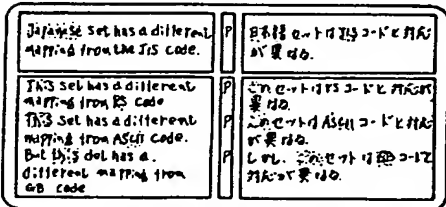 Japanese set has a different
mapping from the JIS code.
P
日本語セットはJISコードと対応
が異なる。
This set has different
mapping from JIS code
This set has a different
mapping from ASCII code.
But this dot has a
different mapping from
GB code
P
P
P
このセットはJISコードと対応が
異なる。
このセットはASCIIコードと対応
が異なる。
しかし、このセットはGBコードと
対応が異なる。